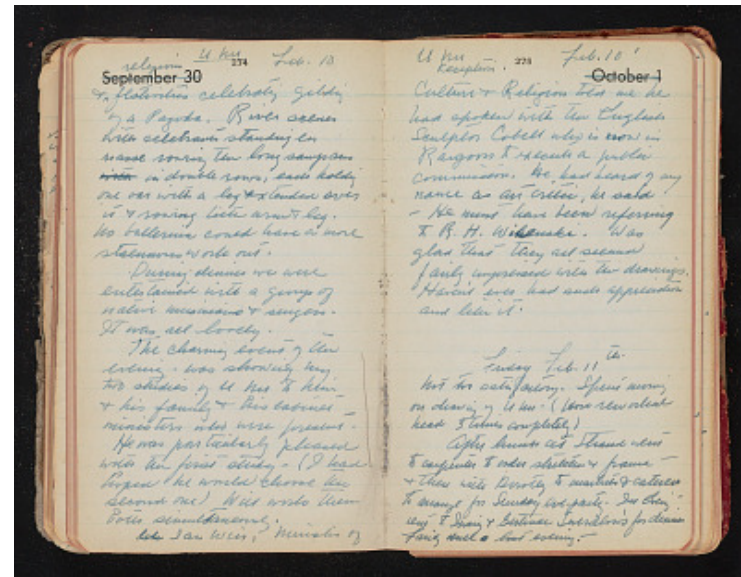 religion U Nu 274 Feb. 10
September 30
& festivities celebrating gilding
of a Pagoda. River scenes
with celebrants standing en
masse rowing the long sampans
with in double rows, each holding
one oar with a leg extended over
it & rowing with arm & leg.
No ballerina could have a more
strenuous work out.
During dinner we were
entertained with a group of
native musicians & singers.
It was all lovely.
The charming event of the
evening - was showing my
two studies of U Nu to him
& his family & his cabinet
ministers who were present -
He was particularly pleased
with the first study - (I had
hoped he would choose the
second one) Will work them
both simultaneously.
Win, Minister of
U Nu Reception. 275 Feb. 10
October 1
Culture & Religion told me he
had spoken with the English
Sculptor who is now in
Rangoon to execute a public
commission. He had heard of my
name as an critic, he said
- He must have been referring
to R. H. Wilenski. Was
glad that they all seemed
fairly impressed with the drawings.
Haven't ever had such appreciation
and like it.
Friday Feb. 11th
Not too satisfactory. Spent morning
on drawing of U Nu. (
head 3 times completely)
After lunch at Strand went
to carpenter to order stretcher & frame
& then with Dorothy to & caterer
to arrange for Sunday eve party.
& for dinner
Fairly a evening -